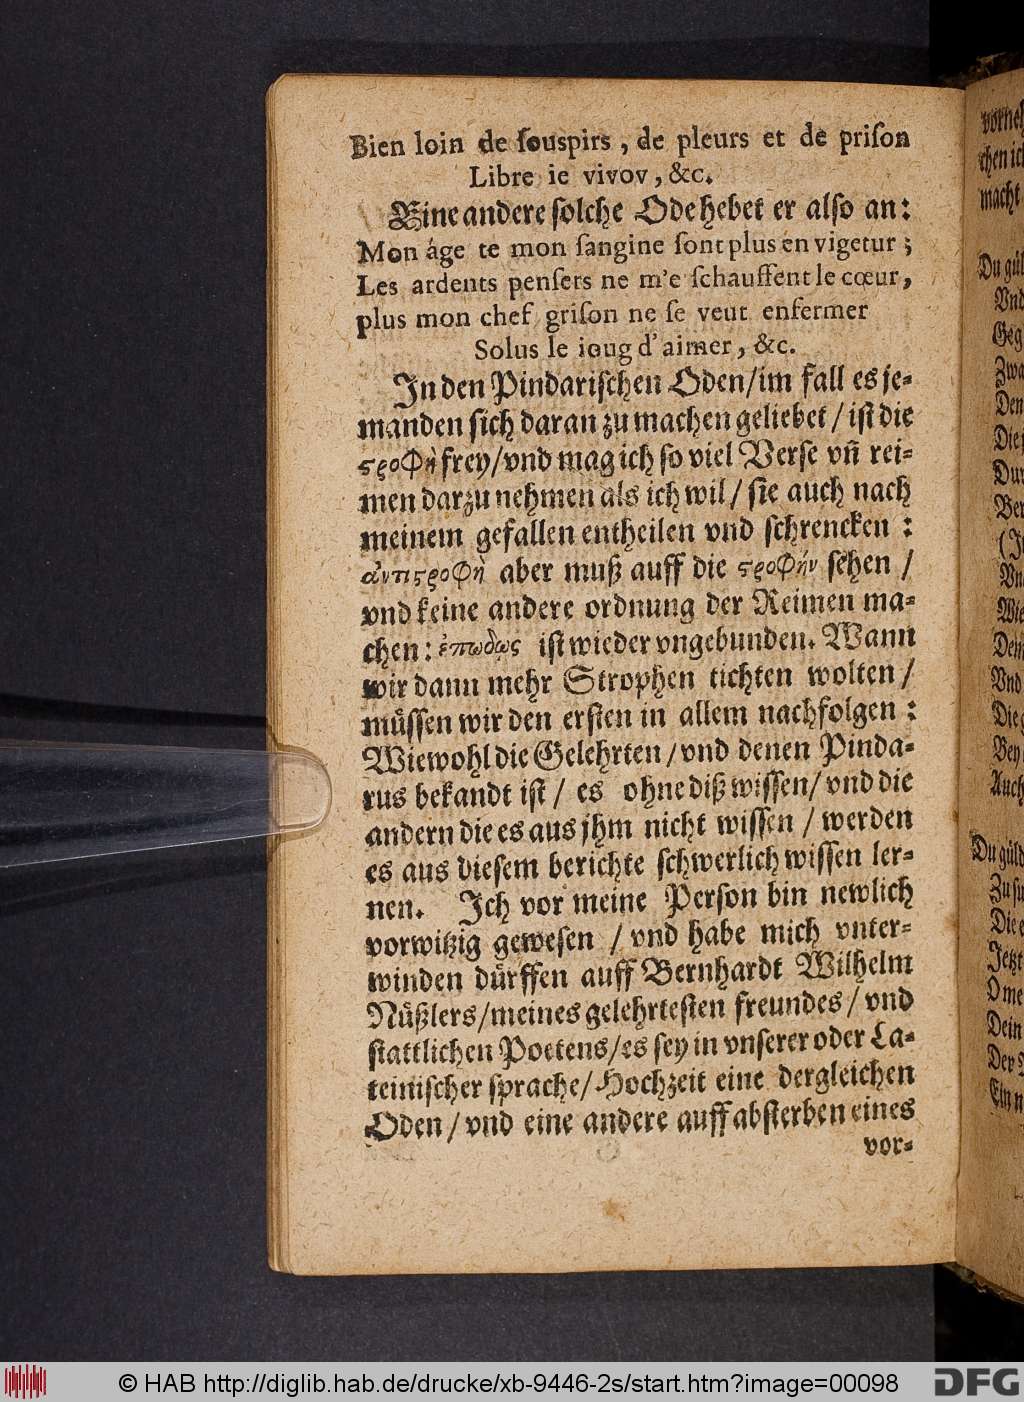 Bien loin de ſouspirs, de pleurs et de priſon
Libre ie vivov, &c.
Eine andere ſolche Ode hebet er alſo an:
Mon áge te mon ſangine ſont plus en vigetur;
Les ardents penſers ne m'e ſchauffent le cœur,
plus mon chef griſon ne ſe veut enfermer
Solus le ioug d'aimer, &c.
In den Pindariſchen Oden/im fall es je⸗
manden ſich daran zu machen geliebet / iſt die
ςροφὴ frey/vnd mag ich ſo viel Verſe vn̄ rei⸗
men darzu nehmen als ich wil / ſie auch nach
meinem gefallen entheilen vnd ſchrencken :
ἀντιςροφὴ aber muß auff die ςροφὴν ſehen /
vnd keine andere ordnung der Reimen ma⸗
chen: ἐπωδως iſt wieder vngebunden. Wann
wir dann mehr Strophen tichten wolten /
müſſen wir den erſten in allem nachfolgen :
Wiewohl die Gelehrten / vnd denen Pinda⸗
rus bekandt iſt / es ohne diß wiſſen/ vnd die
andern die es aus jhm nicht wiſſen / werden
es aus dieſem berichte ſchwerlich wiſſen ler⸗
nen. Ich vor meine Perſon bin newlich
vorwitzig geweſen / vnd habe mich vnter⸗
winden dürffen auff Bernhardt Wilhelm
Nüßlers/meines gelehrteſten freundes/ vnd
ſtattlichen Poetens/es ſey in vnſerer oder La⸗
teiniſcher ſprache/ Hochzeit eine dergleichen
Oden / vnd eine andere auff abſterben eines
vor⸗
macht
Du gül
Vnd
Geg
Zwa
Den
Die
Dur
Ber
Wie
Dein
Vnd
Die
Bey
Auch
Du güld
Zu
Die
Jetzt
O me
Dein
Der
Ein
© HAB http://diglib.hab.de/drucke/xb-9446-2s/start.htm?image=00098
DFG